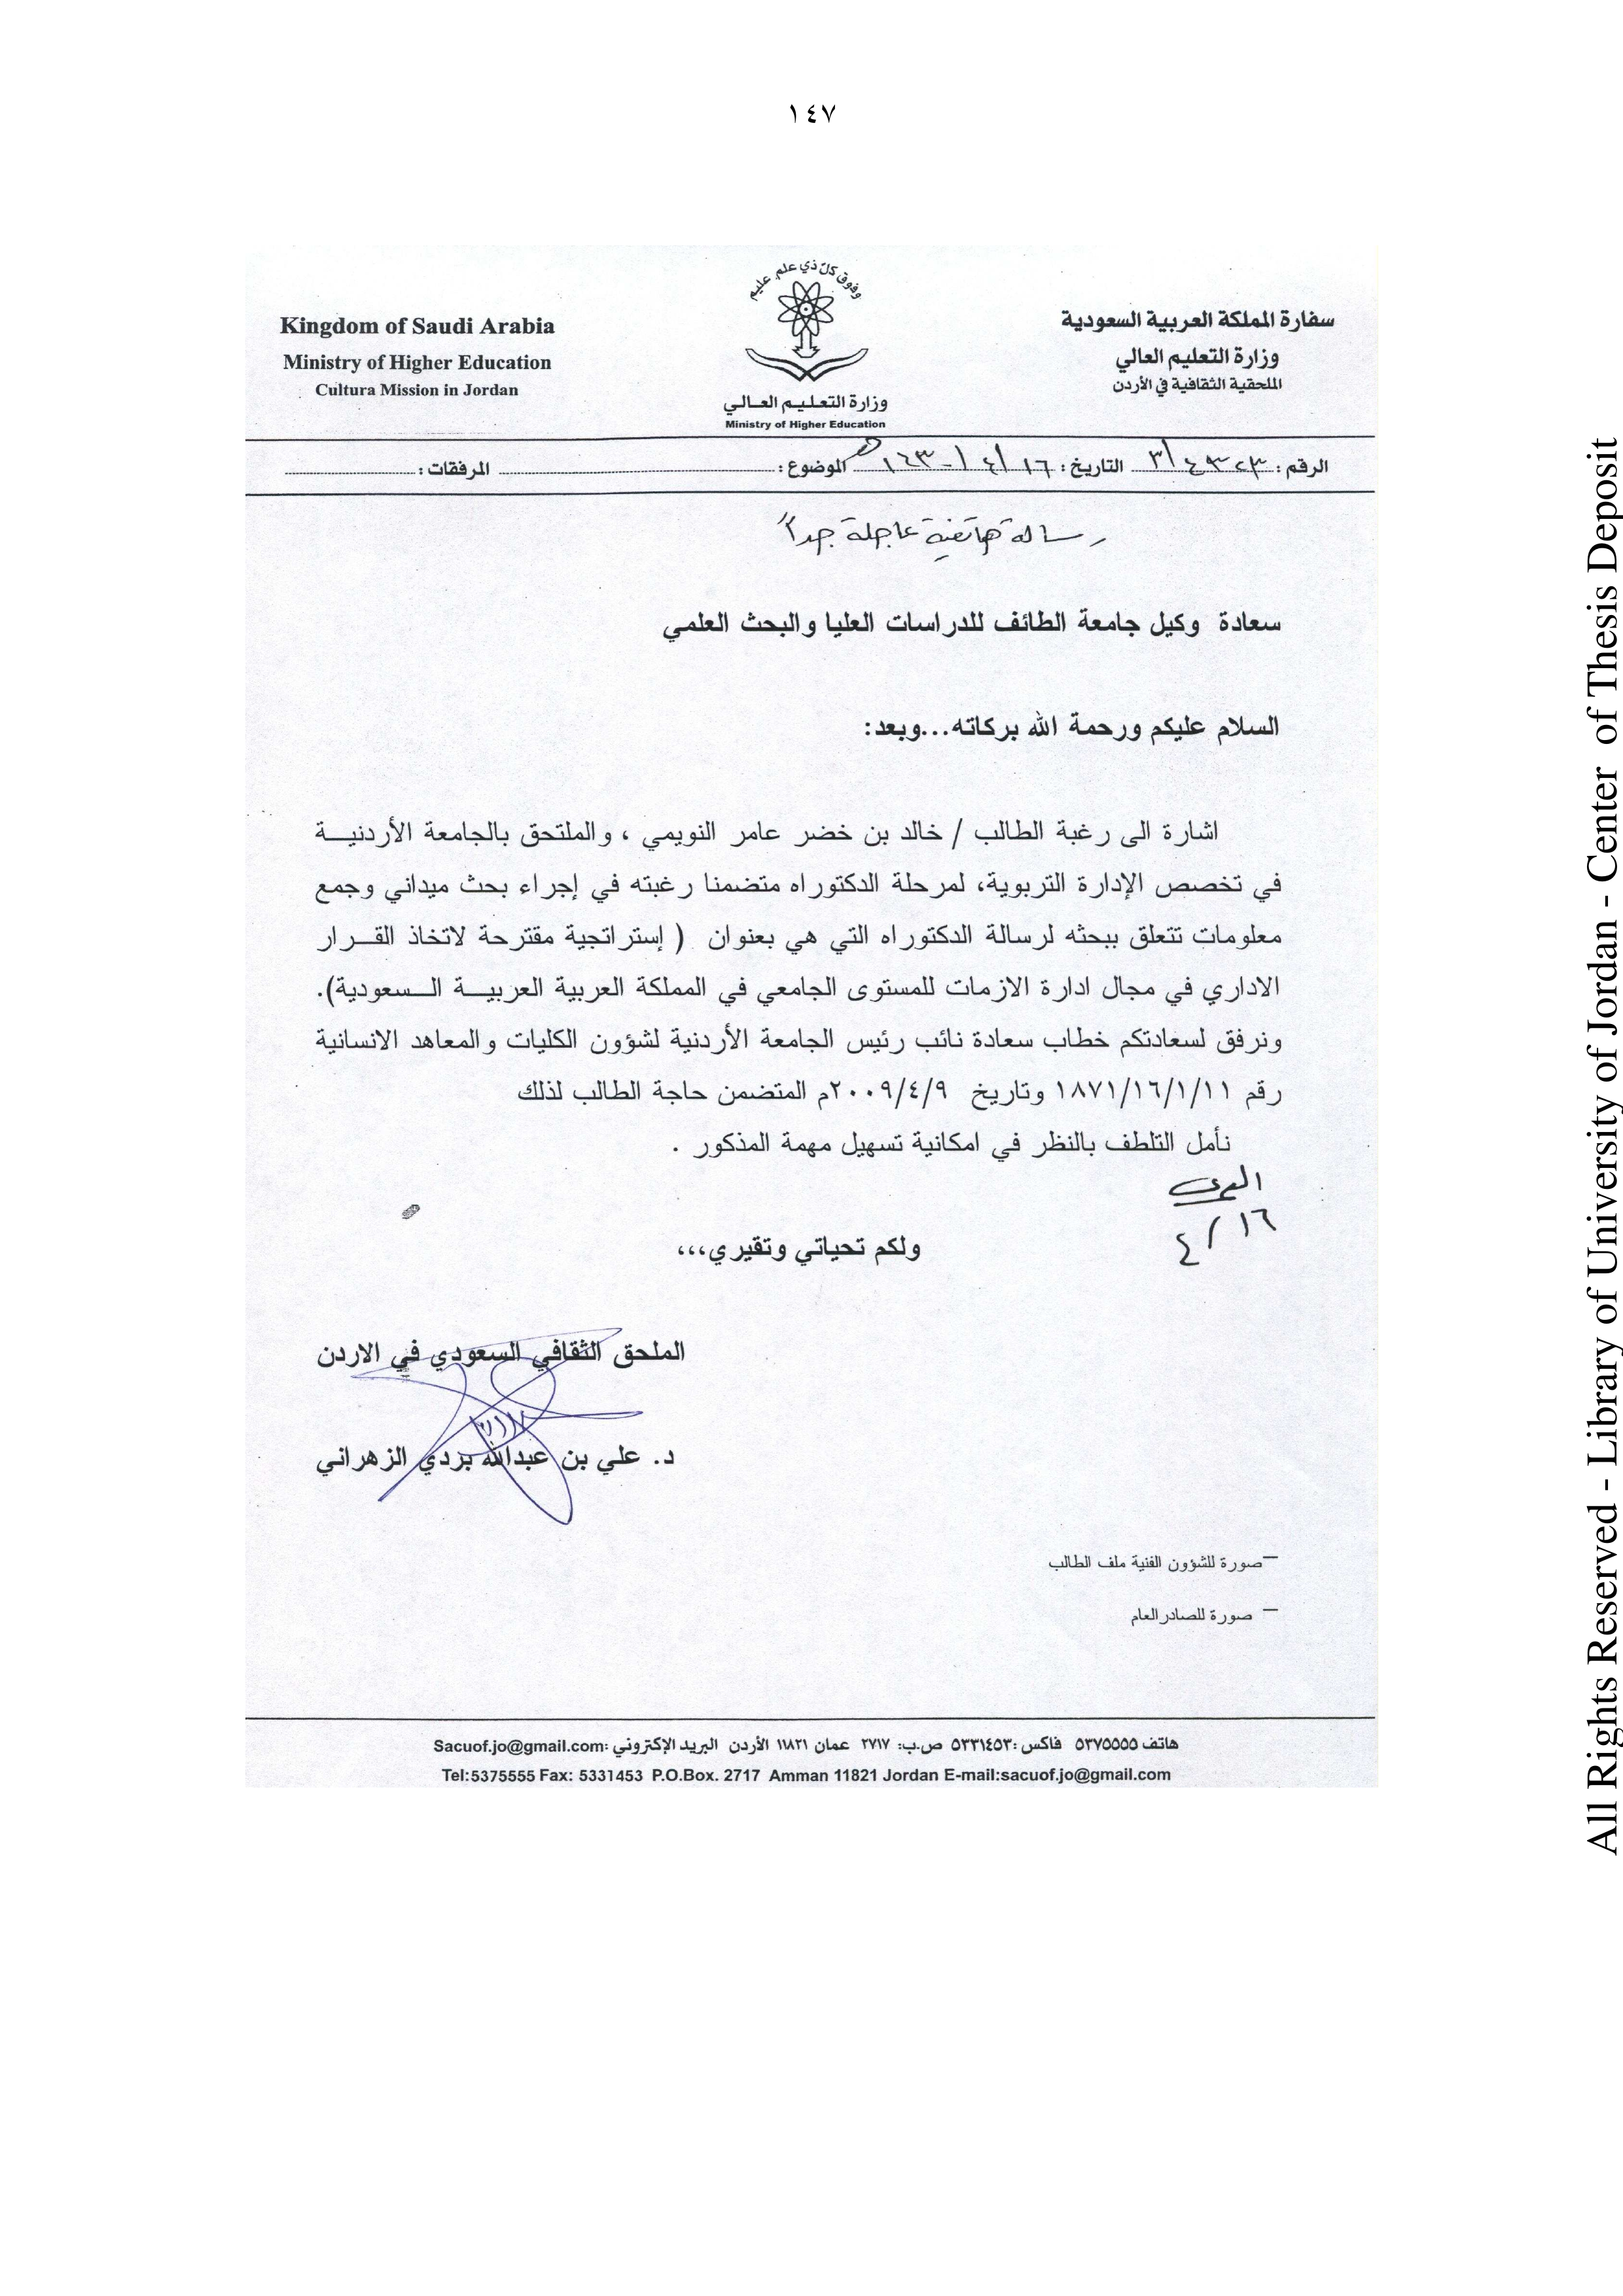 ١٤٧
وفوق كل ذي علم عليم
سفارة المملكة العربية السعودية
وزارة التعليم العالي
الملحقية الثقافية في الأردن
Kingdom of Saudi Arabia
Ministry of Higher Education
Cultura Mission in Jordan
وزارة التعليم العالي
Ministry of Higher Education
الرقم: التاريخ: ١٦/٤/١٤٣٠هـ الموضوع: المرفقات:
رسالة هاتفية عاجلة جداً
سعادة وكيل جامعة الطائف للدراسات العليا والبحث العلمي
السلام عليكم ورحمة الله بركاته...وبعد:
اشارة الى رغبة الطالب / خالد بن خضر عامر النويمي ، والملتحق بالجامعة الأردنية
في تخصص الإدارة التربوية، لمرحلة الدكتوراه متضمنا رغبته في إجراء بحث ميداني وجمع
معلومات تتعلق ببحثه لرسالة الدكتوراه التي هي بعنوان ( إستراتجية مقترحة لاتخاذ القرار
الاداري في مجال ادارة الازمات للمستوى الجامعي في المملكة العربية العربية السعودية).
ونرفق لسعادتكم خطاب سعادة نائب رئيس الجامعة الأردنية لشؤون الكليات والمعاهد الانسانية
رقم ١٨٧١/١٦/١/١١ وتاريخ ٢٠٠٩/٤/٩م المتضمن حاجة الطالب لذلك
نأمل التلطف بالنظر في امكانية تسهيل مهمة المذكور .
١٦/٤
ولكم تحياتي وتقيري،،،
الملحق الثقافي السعودي في الاردن
د. علي بن عبدالله بردي الزهراني
–صورة للشؤون الفنية ملف الطالب
– صورة للصادر العام
هاتف ٥٣٧٥٥٥٥ فاكس :٥٣٣١٤٥٣ ص.ب: ٢٧١٧ عمان ١١٨٢١ الأردن البريد الإكتروني :Sacuof.jo@gmail.com
Tel:5375555 Fax: 5331453 P.O.Box. 2717 Amman 11821 Jordan E-mail:sacuof.jo@gmail.com
All Rights Reserved - Library of University of Jordan - Center of Thesis Deposit